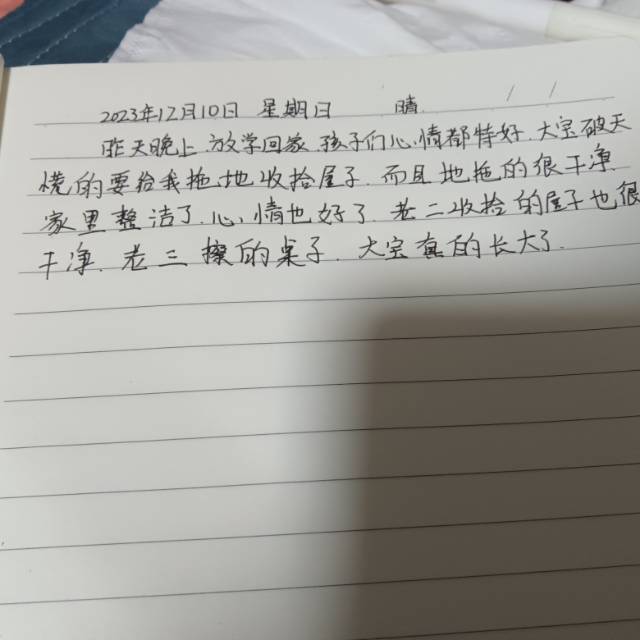 2023年12月10日 星期日 晴
昨天晚上 放学回家 孩子们心情都特好 大宝破天
慌的要给我拖地收拾屋子.而且地拖的很干净
家里整洁了.心情也好了.老二收拾的屋子也很
干净.老三擦的桌子.大宝真的长大了.